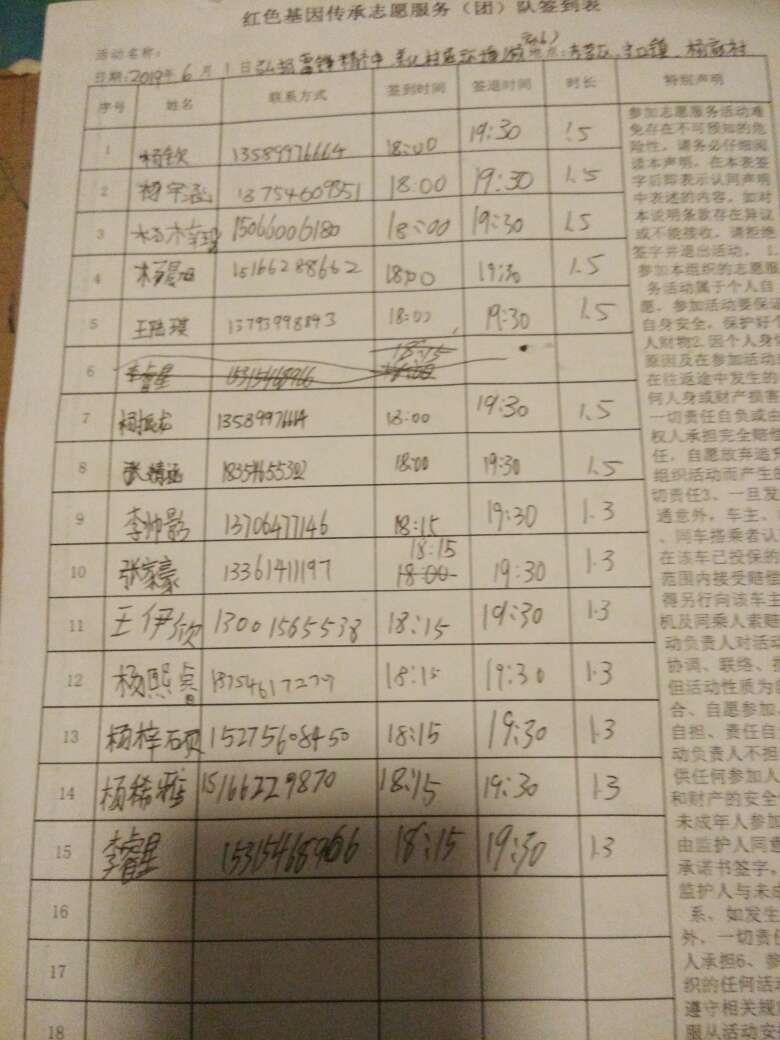 红色基因传承志愿服务（团）队签到表
活动名称：
日期：2019年6月1日 弘扬雷锋精神 地点：
序号 姓名 联系方式 签到时间 签退时间 时长 特别声明
1 杨钦 13589976664 18:00 19:30 1.5
2 杨宇涵 13754609851 18:00 19:30 1.5
3 15066006180 18:00 19:30 1.5
4 15166288662 18:00 19:30 1.5
5 王皓琪 13793998843 18:00 19:30 1.5
6 李睿星 15315468966 18:15 18:00
7 杨振龙 13589976664 18:00 19:30 1.5
8 张婧涵 18:00 19:30 1.5
9 李帅影 13706477146 18:15 19:30 1.3
10 张家豪 13361411197 18:15 18:00 19:30 1.3
11 王伊欣 13001565538 18:15 19:30 1.3
12 杨熙睿 18754617279 18:15 19:30 1.3
13 杨梓硕 15275608450 18:15 19:30 1.3
14 杨稀雅 15166229870 18:15 19:30 1.3
15 李睿星 15315468966 18:15 19:30 1.3
16
17
18
参加志愿服务活动难
免存在不可预知的危
险性，请务必仔细阅
读本声明，在本表签
字后即表示认同声明
中表述的内容，如对
本说明条款存在异议
或不能接收，请拒绝
签字并退出活动。 1.
参加本组织的志愿服
务活动属于个人自
愿，参加活动要保证
自身安全，保护好个
人财物2.因个人身体
原因及在参加活动
在往返途中发生的
何人身或财产损害
一切责任自负或由
权人承担完全赔偿
任，自愿放弃追究
组织活动而产生的
切责任3、一旦发
通意外，车主、
、同车搭乘者认
在该车已投保的
范围内接受赔偿
得另行向该车主
机及同乘人索赔
动负责人对活动
协调、联络、
但活动性质为
合、自愿参加、
自担、责任自
动负责人不担
供任何参加人
和财产的安全
未成年人参加
由监护人同意
承诺书签字。
监护人与未成
系，如发生
外，一切责任
人承担6、参
织的任何活动
遵守相关规
服从活动安